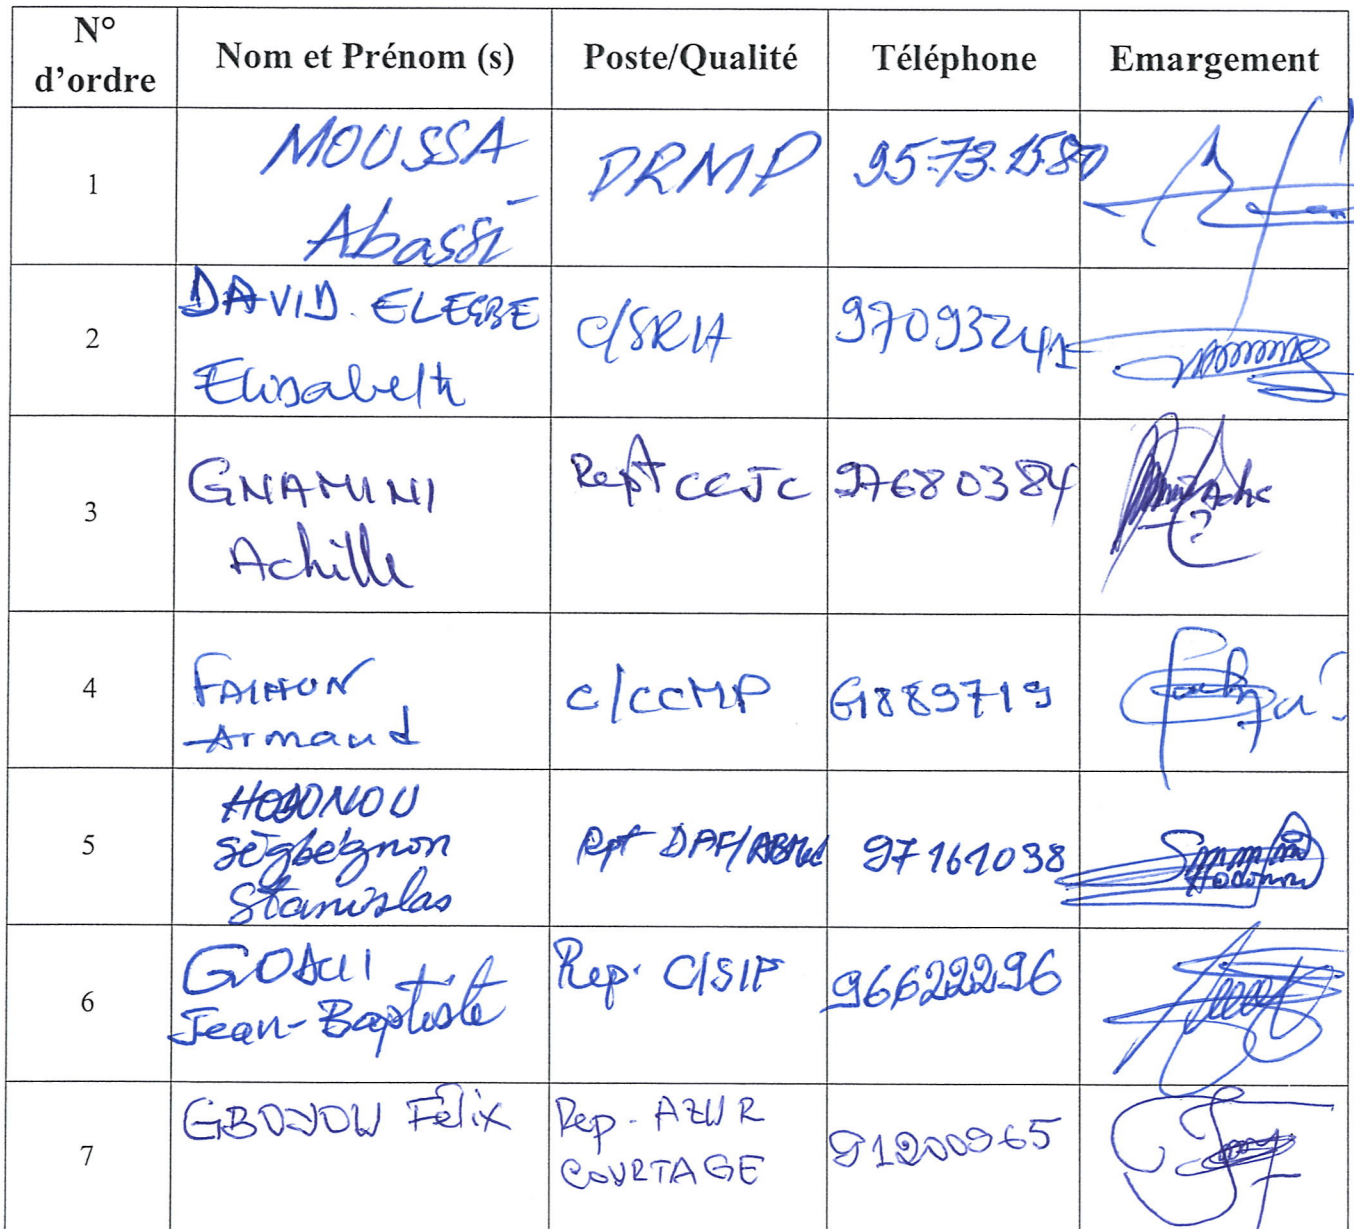 N° d'ordre Nom et Prénom (s) Poste/Qualité Téléphone Emargement
1 MOUSSA Abassi DRMP 95.73.1580
2 DAVID. ELEGBE Elisabeth C/SRIA 97093241
3 GNAMINI Achille Rept CCJC 97680384
4 FAIHUN Armaud C/CCMP 61889719
5 HODONOU Ségbégnon Stanislas Rpt DAF/ABMed 97161038
6 Jean-Baptiste Rep. C/SIP 96622296
7 GBONOU Félix Rep. AZUR COURTAGE 91200965